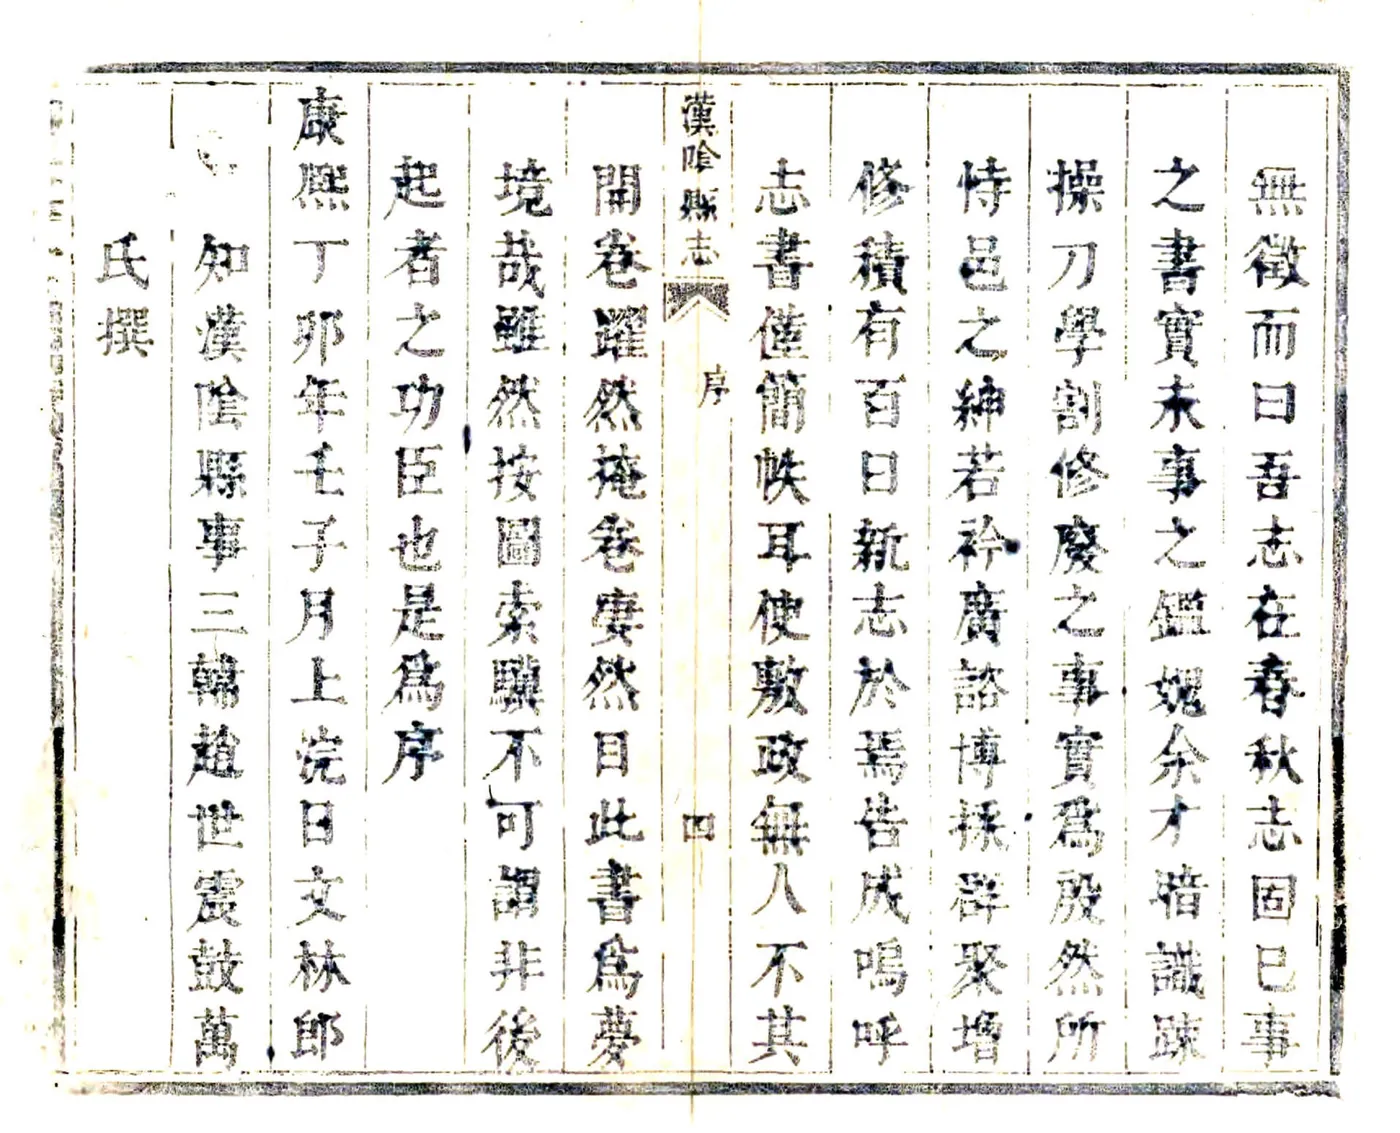 無徵而曰吾志在春秋志固已事
之書實未事之鑑媿余才暗識疎
操刀學割修廢之事實爲殷然所
恃邑之紳若衿廣諮博採群聚增
修積有百日新志於焉告成嗚呼
志書僅簡帙耳使敷政無人不其
漢陰縣志
序
四
開卷躍然掩卷妻然目此書爲夢
境哉雖然按圖索驥不可謂非後
起者之功臣也是爲序
康熙丁卯年壬子月上浣日文林郎
知漢陰縣事三韓趙世震鼓萬
氏撰